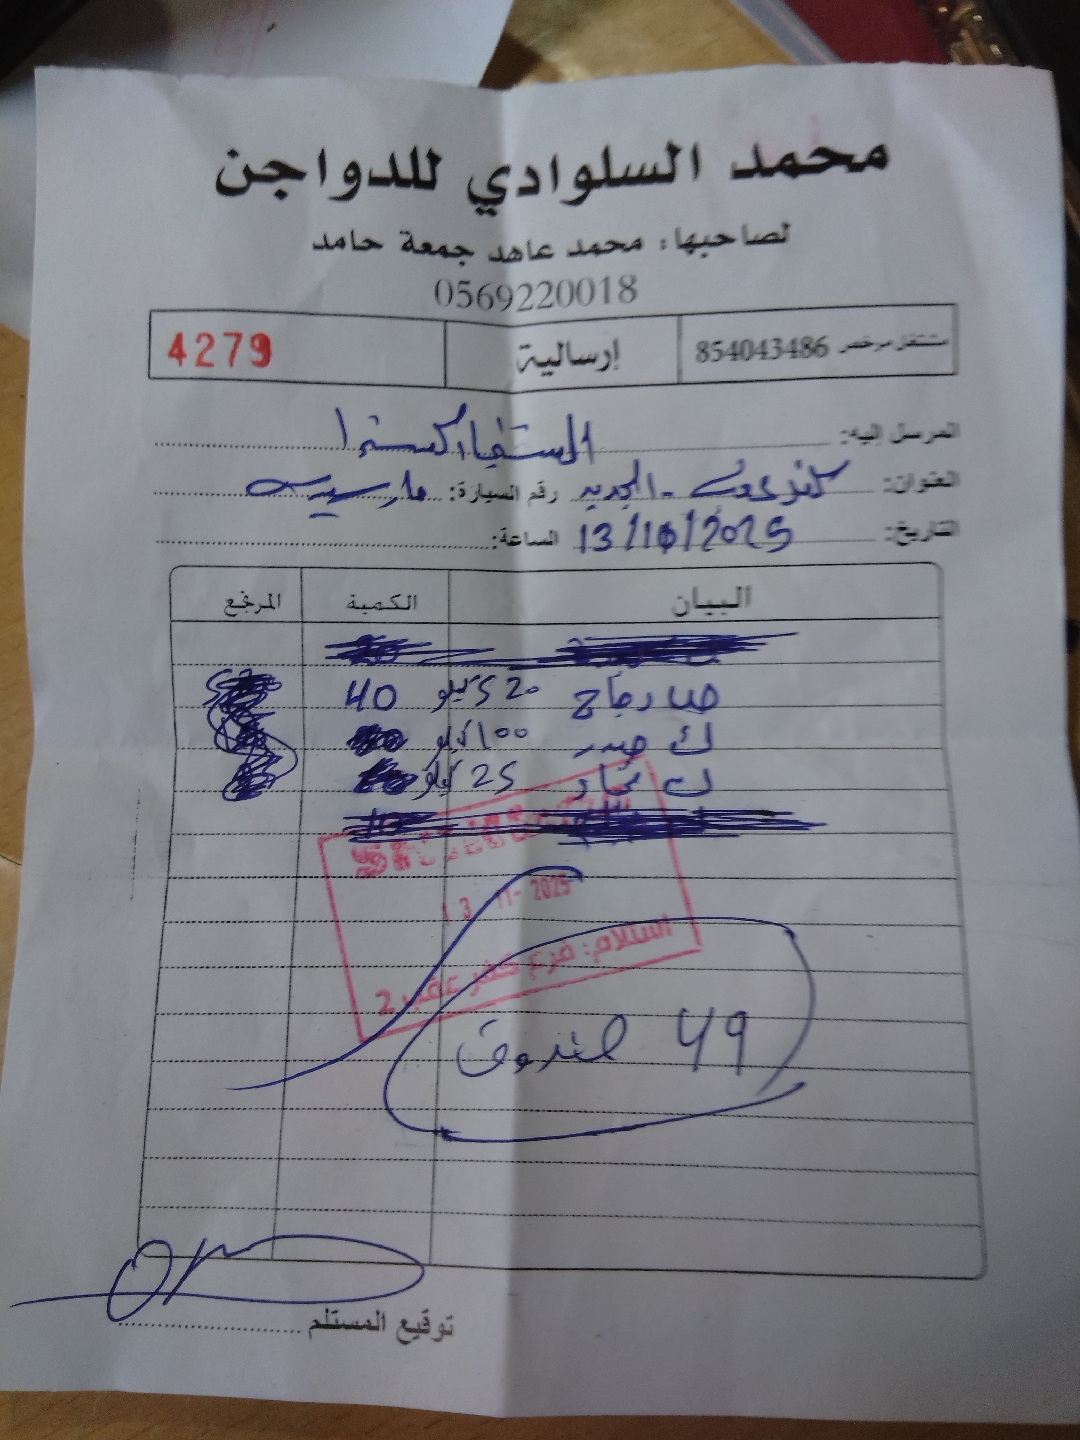 محمد السلوادي للدواجن
لصاحبها: محمد عاهد جمعة حامد
0569220018
مشتغل مرخص 854043486 إرسالية 4279
المرسل إليه:
العنوان: كفر عقب - الجديد رقم السيارة:
التاريخ: 13/10/2025 الساعة:
البيان الكمية المرجّع
دجاج 520 كيلو 40
ك صدر 100 كيلو
ك 25 كيلو
13 -11- 2025
استلام: فرع كفر عقب 2
49 صندوق
توقيع المستلم